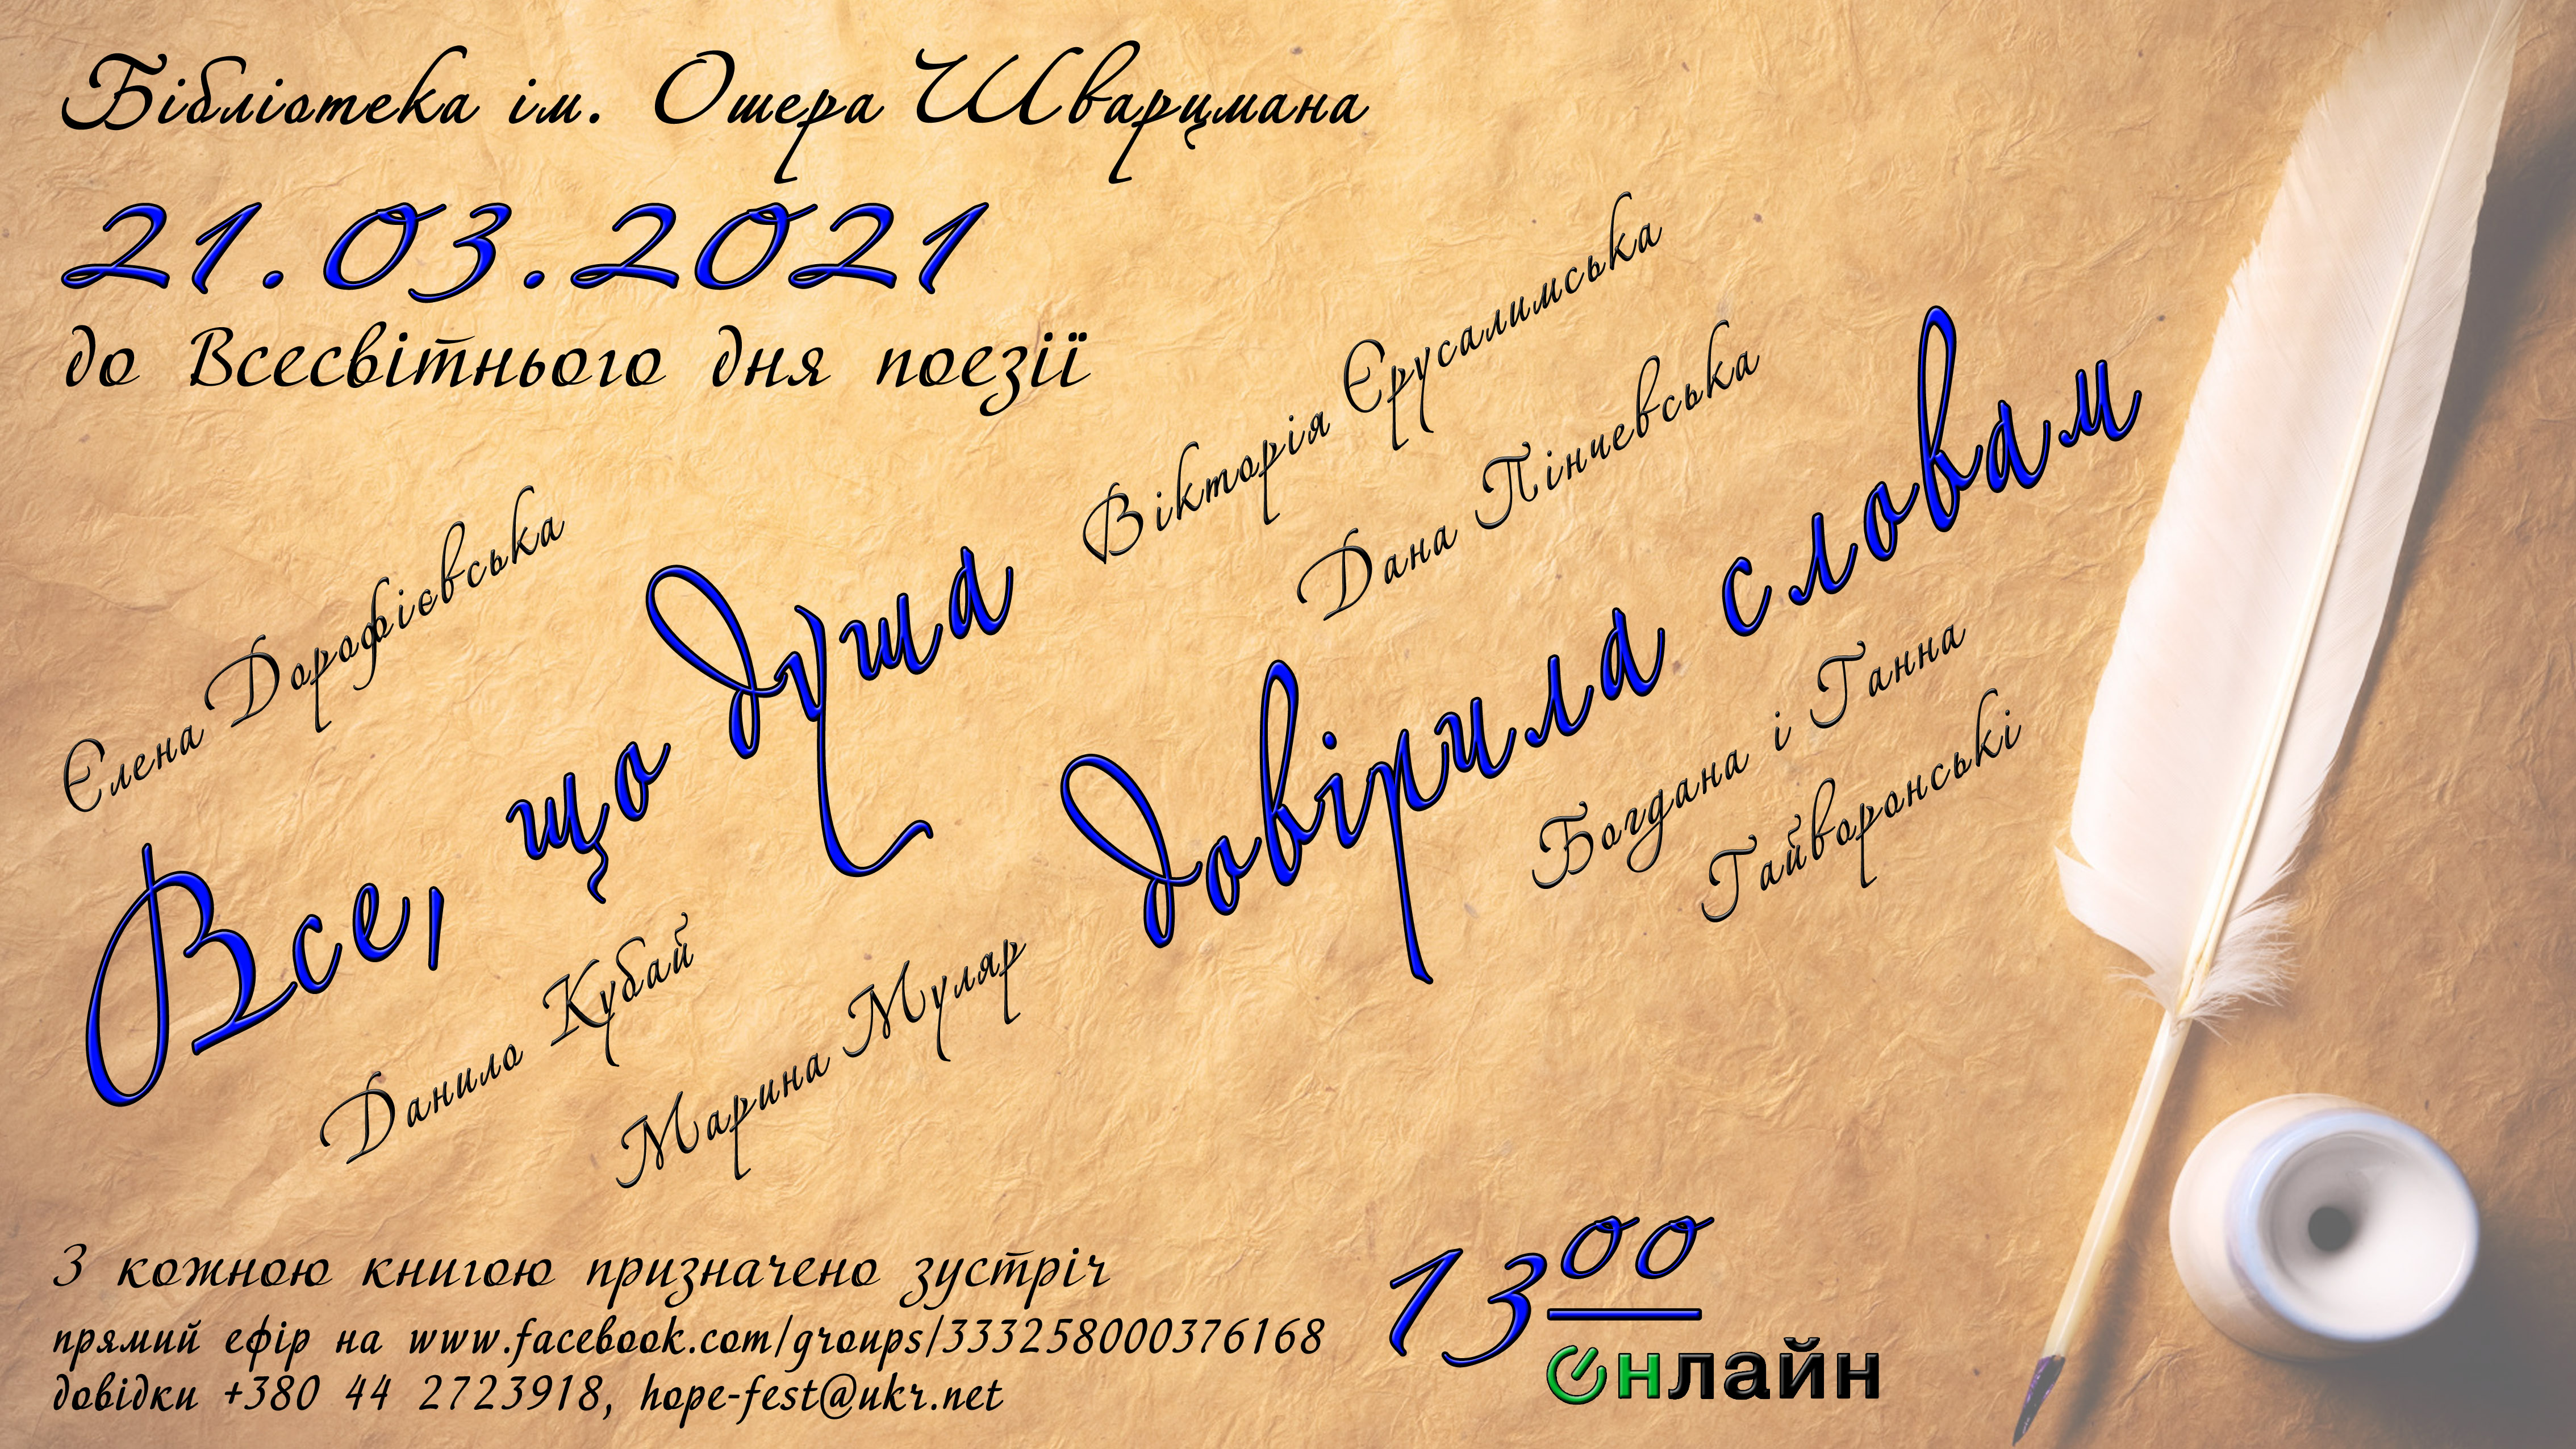 Бібліотека ім. Ошера Шварцмана
21.03.2021
до Всесвітнього дня поезії
Єлена Дорофієвська
Вікторія Єрусалимська
Дана Пінчевська
Все, що душа довірила словам
Данило Кубай
Марина Муляр
Богдана і Ганна
Гайворонські
З кожною книгою призначено зустріч
прямий ефір на www.facebook.com/groups/333258000376168
довідки +380 44 2723918, hope-fest@ukr.net
13 00
Онлайн